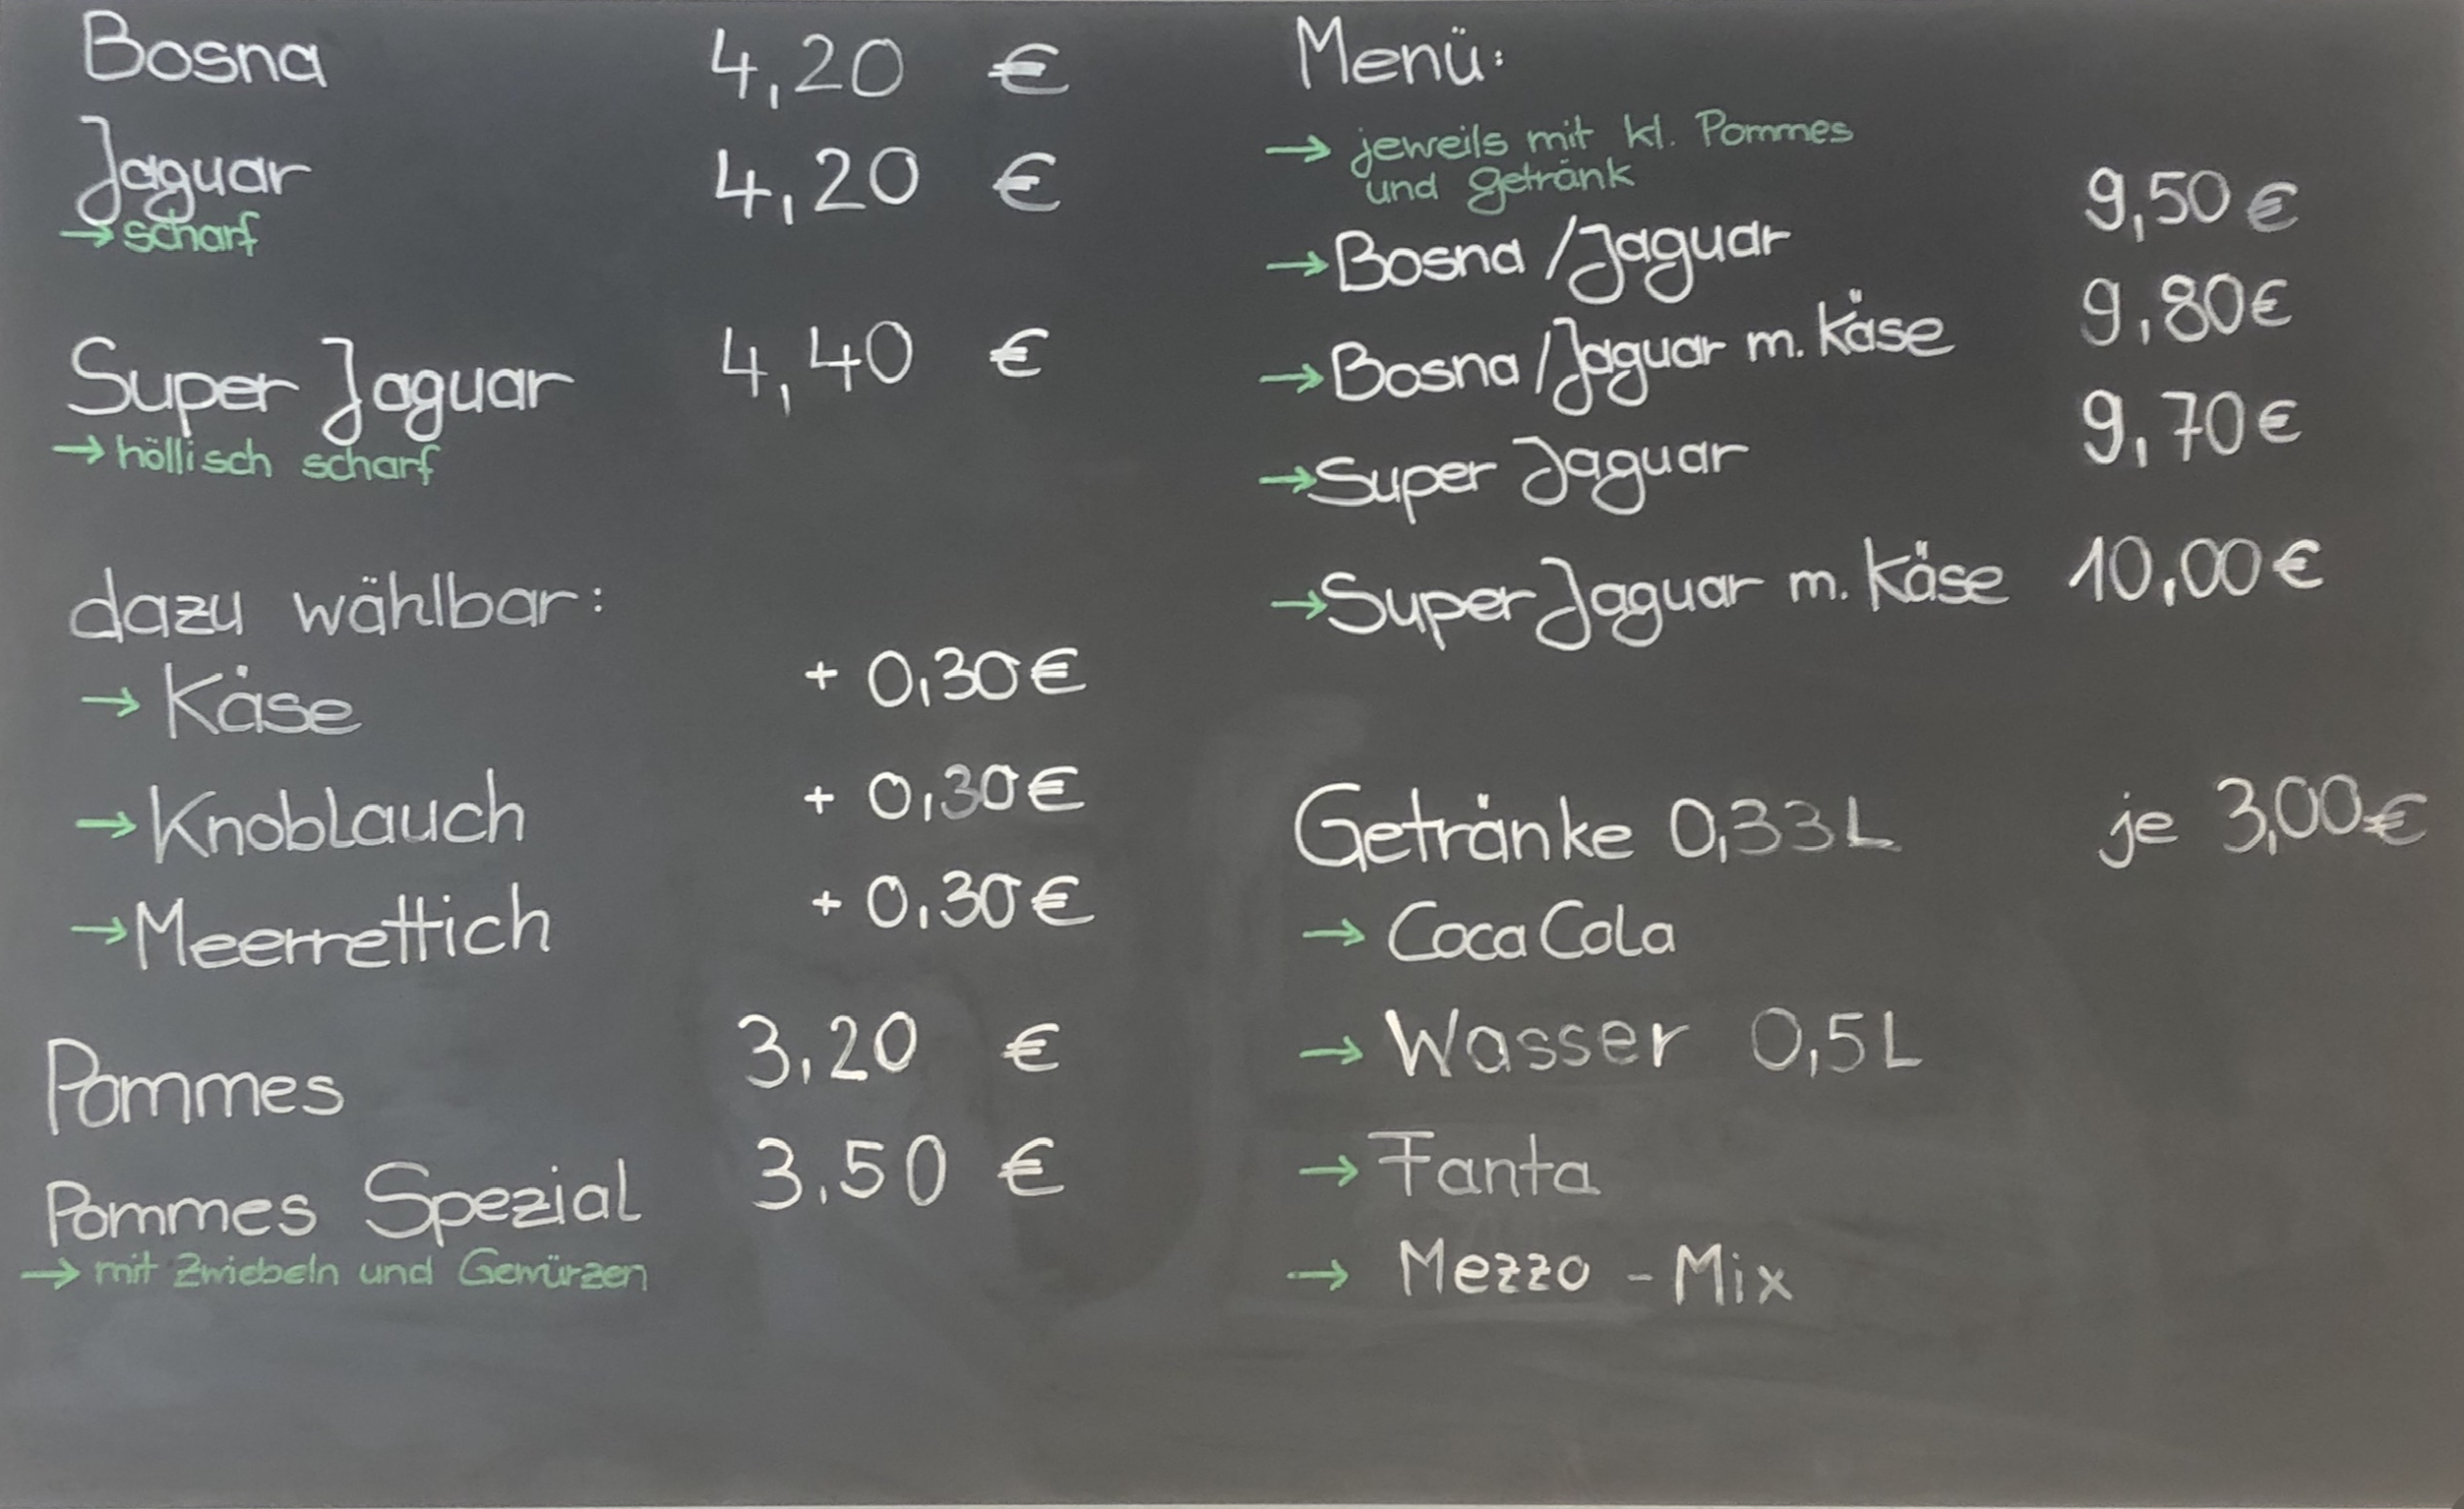 Bosna 4,20 €
Jaguar 4,20 €
→ scharf
Super Jaguar 4,40 €
→ höllisch scharf
dazu wählbar:
→ Käse + 0,30€
→ Knoblauch + 0,30€
→ Meerrettich + 0,30€
Pommes 3,20 €
Pommes Spezial 3,50 €
→ mit Zwiebeln und Gewürzen
Menü:
→ jeweils mit kl. Pommes
und getränk
→ Bosna / Jaguar 9,50 €
→ Bosna / Jaguar m. Käse 9,80€
→ Super Jaguar 9,70€
→ Super Jaguar m. Käse 10,00€
Getränke 0,33L je 3,00€
→ Coca Cola
→ Wasser 0,5L
→ Fanta
→ Mezzo - Mix